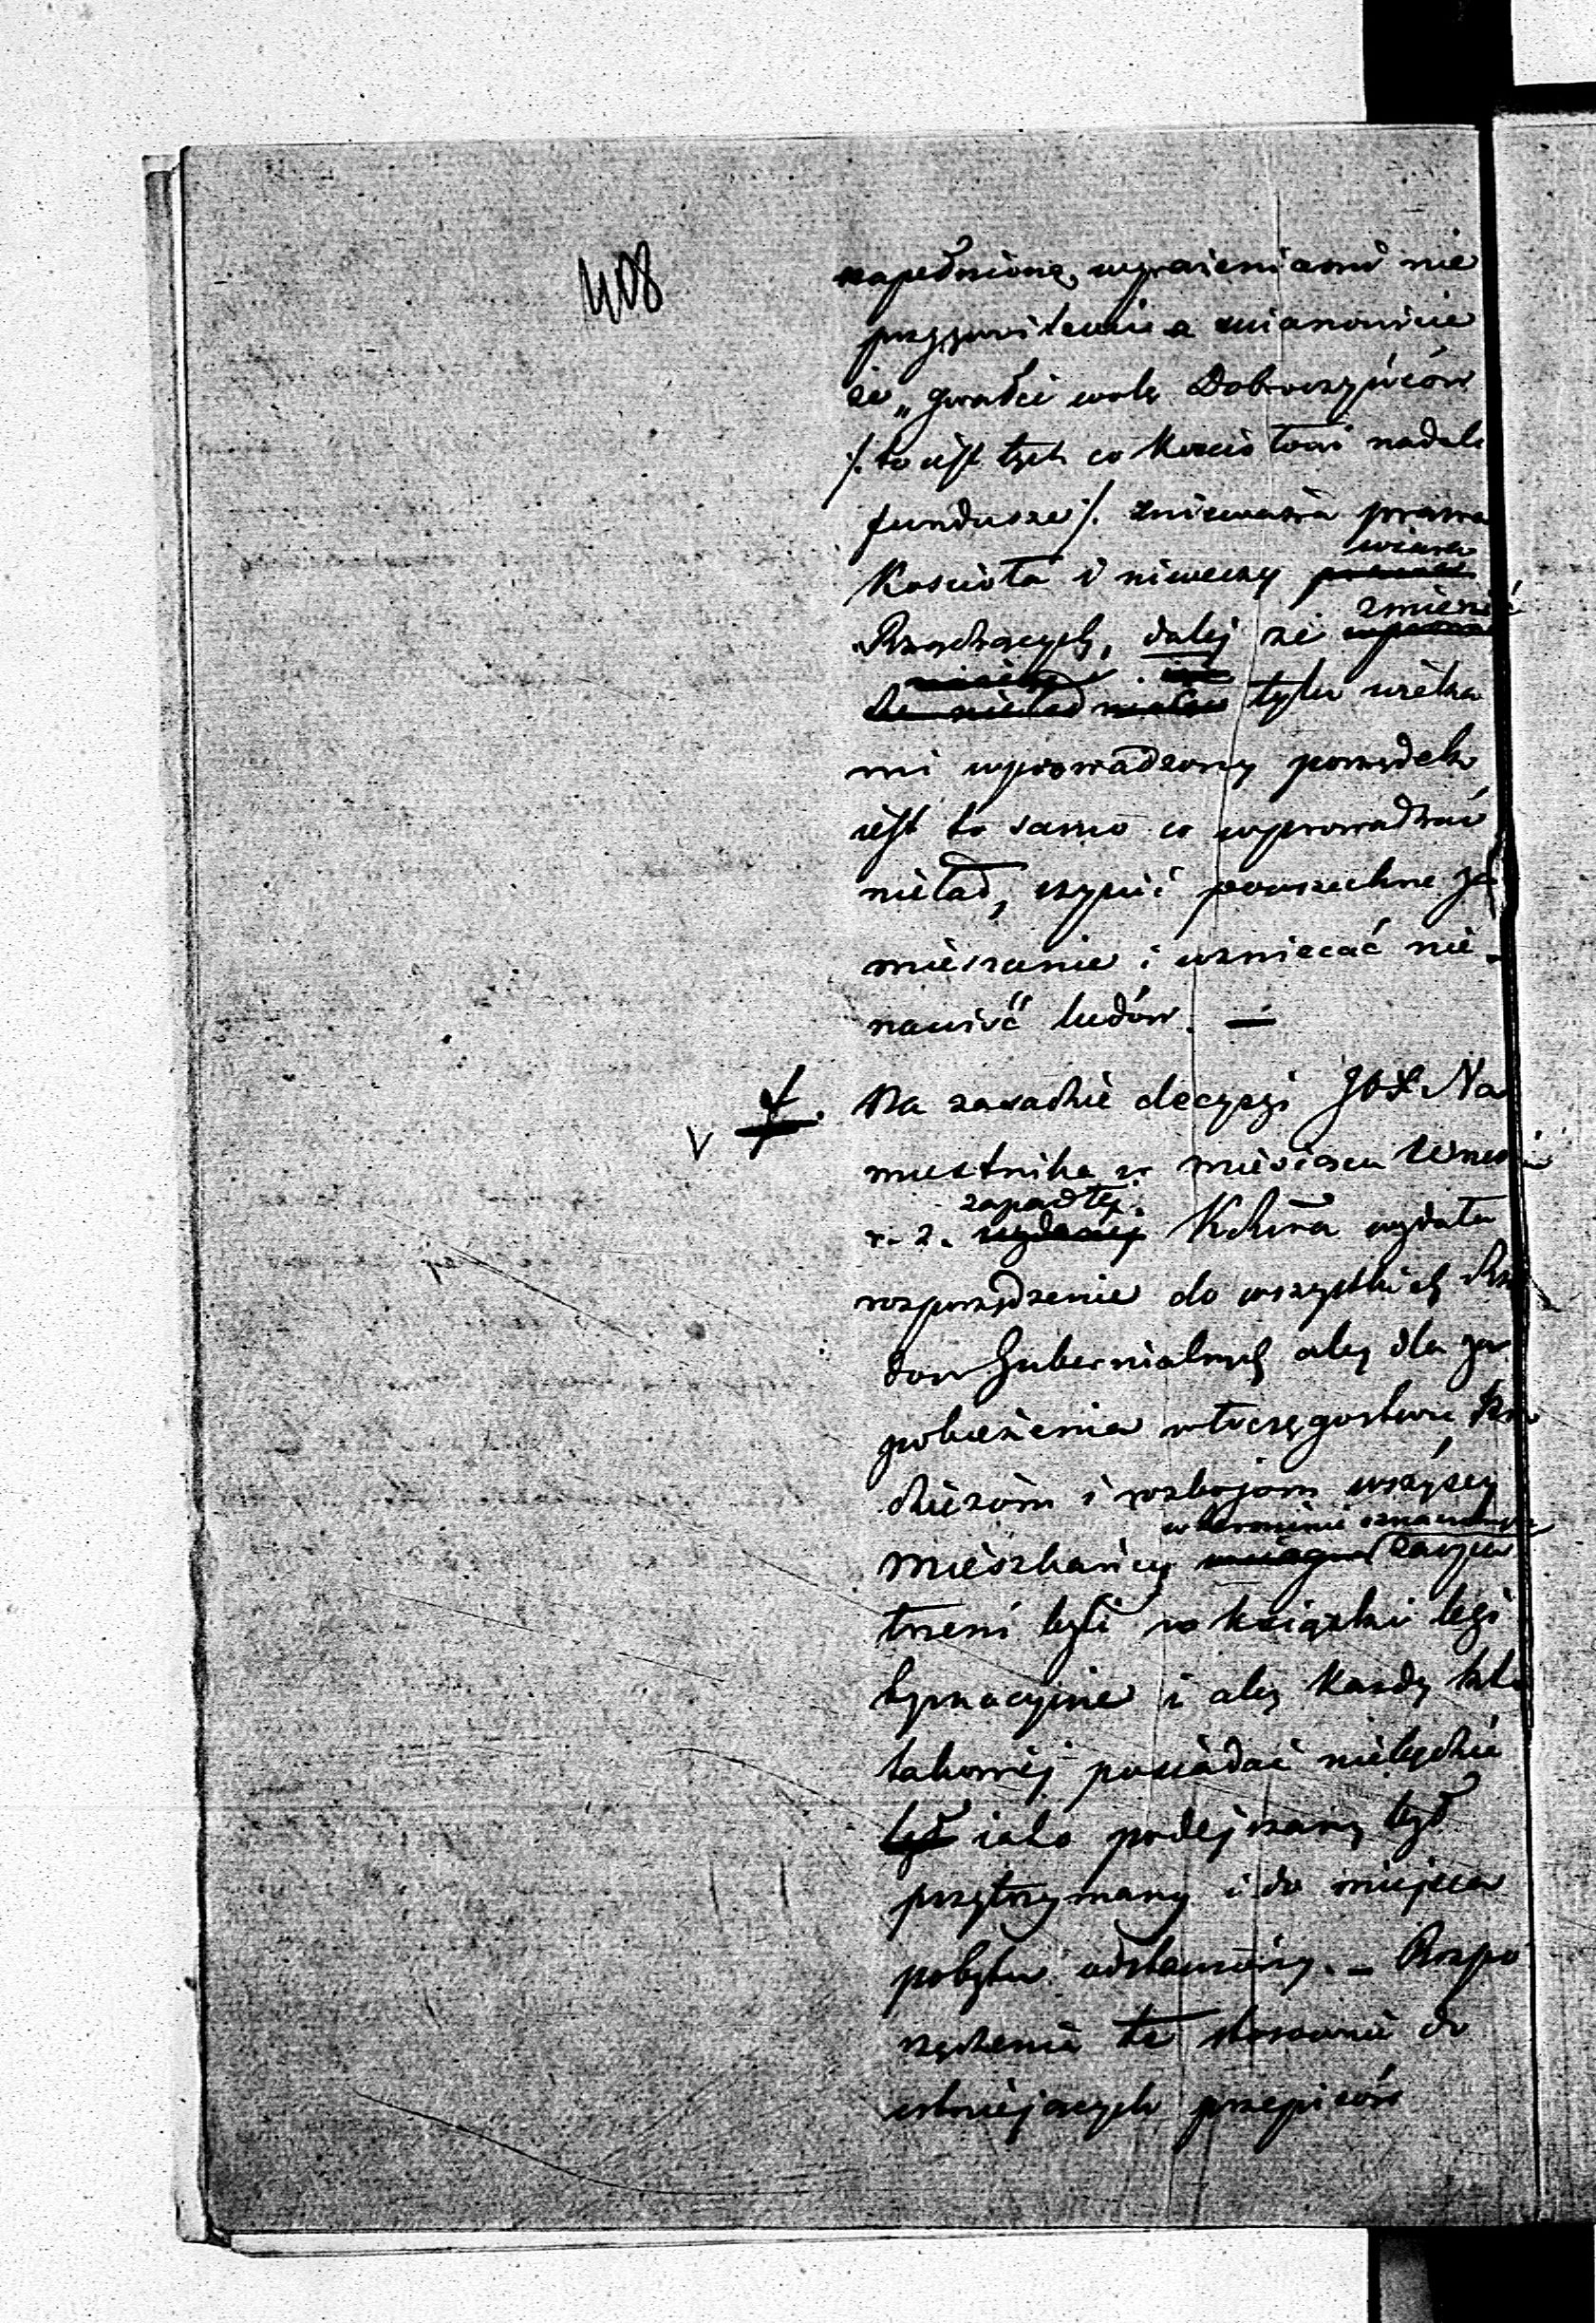 408
napełnioną wyrażeniami nie
przyzwoitemi a mianowicie
że „gwałci wolę Dobroczyńców
/. to iest tych co Kościołowi nadali
fundusze /. znieważa prawa
wiarę
Kościoła i niweczy
zmienić
Rządzących, dalej że
tylu wieka
mi wprowadzony porządek
iest to samo co wprowadzać
nieład, czynić powszechne za
mieszanie i wzniecać nie
nawiść ludów. —
V
Na zasadzie decyzyi JOX Na
miestnika w miesiącu
zapadłej
r. z. wydanej Kom̃a wydała
rozporządzenie do wszystkich Rzą
dow Gubernialnych aby dla za
pobieżenia włóczęgostwu Kra
dzieżom i rozbojom wszyscy
w terminie oznaczonym
Mieszkańcy zaopa
trzeni byli w książki legi
tymacyjne i aby każdy kto
takowej posiadać niebędzie
był iako podejrzany był
przytrzymany i do miejsca
pobytu odstawiony. – Rozpo
rządzenie te stosownie do
istniejących przepisów